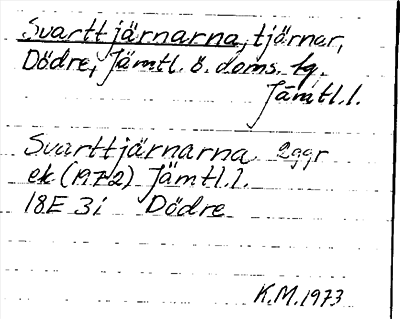 Svarttjärnarna, tjärnar,
Dödre, Jämtl. ö. doms. tg.
Jämtl.l.
Svarttjärnarna 2ggr
ek (1972) Jämtl.l.
18E 3i Dödre
K.M.1973